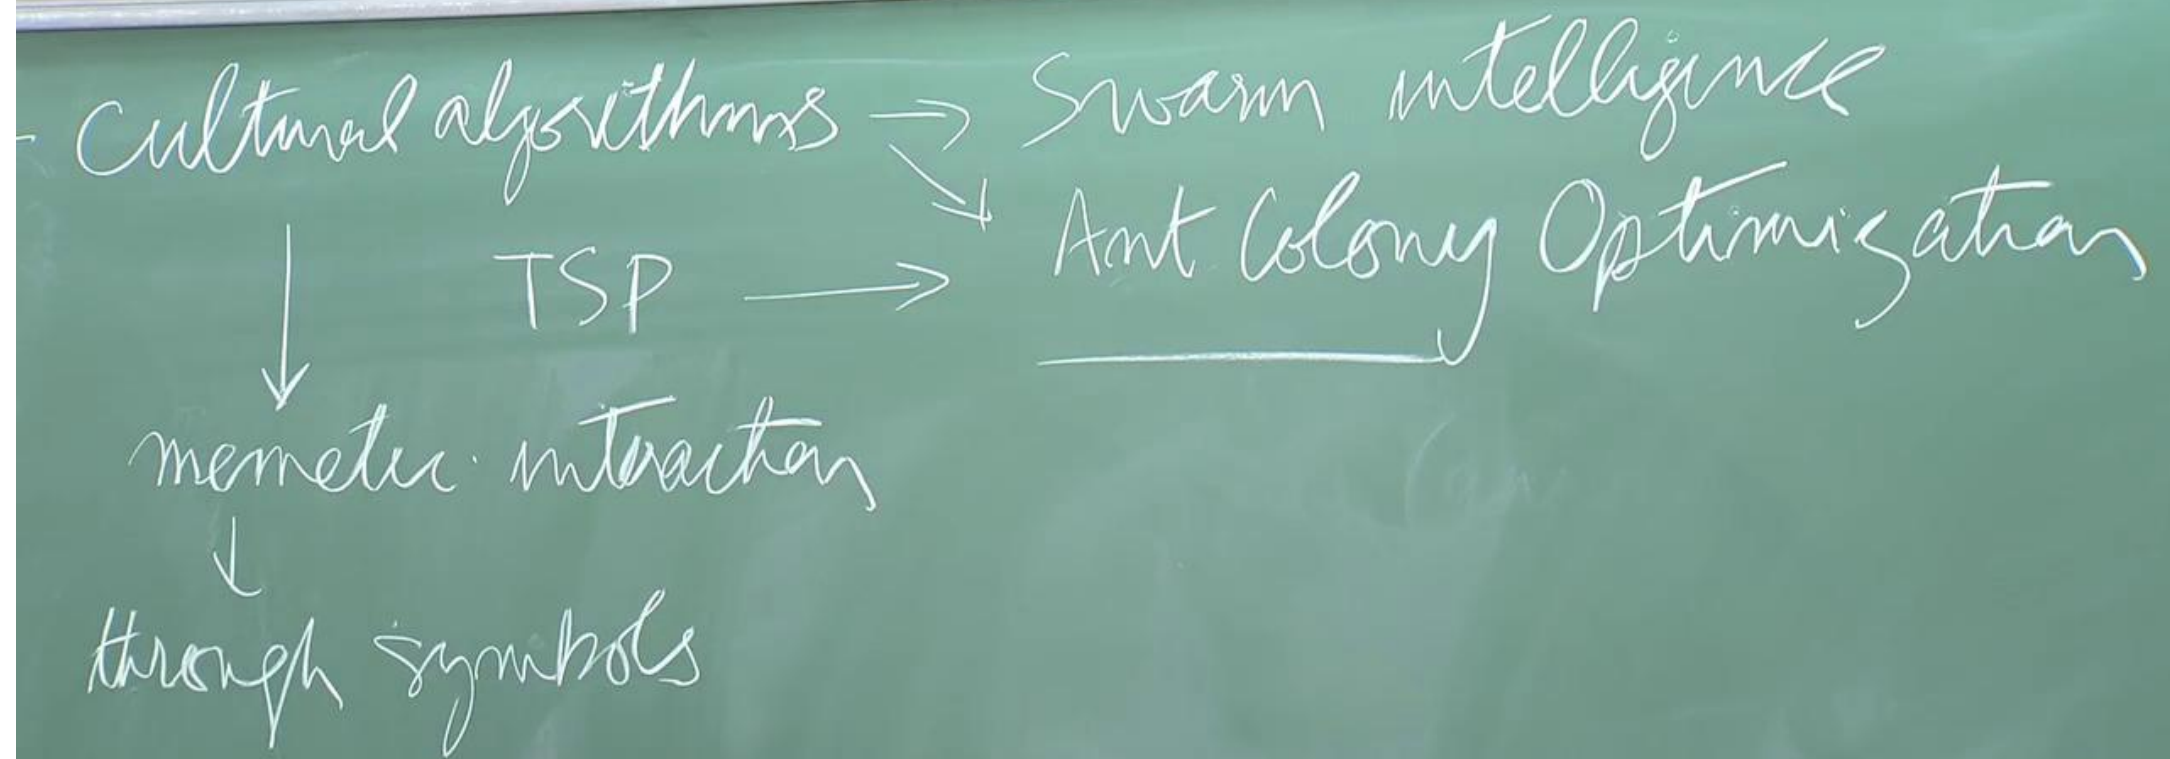 Cultural algorithms → Swarm intelligence
Ant Colony Optimization
TSP →
memetic interaction
through symbols